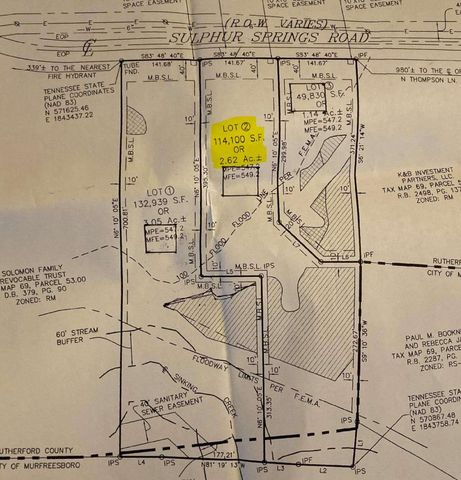 SPACE EASEMENT
SPACE EASEMENT
(R.O.W. VARIES)
SULPHUR SPRINGS ROAD
EOP
EOP
339'± TO THE NEAREST
FIRE HYDRANT
TENNESSEE STATE
PLANE COORDINATES
(NAD 83)
N 571625.46
E 1843437.22
TUBE
FND.
S83° 48' 40"E
141.67
S83° 48' 40"E
141.67
S83° 48' 40"E
IPS
IPS
IPF
980'± TO THE
N THOMPSON LN.
M.B.S.L.
M.B.S.L.
M.B.S.L.
LOT 3
49,830 S.F.
OR
1.14 Ac.±
MPE=547.2
MFE=549.2
LOT 2
114,100 S.F.
OR
2.62 Ac.±
MPE=547.2
MFE=549.2
LOT 1
132,939 S.F.
OR
3.05 Ac.±
MPE=547.2
MFE=549.2
N6° 10' 05"E
700.81
N6° 10' 05"E
395.30
N6° 10' 05"E
299.98
S6° 21' 14"W
371.24
K&B INVESTMENT
PARTNERS, LLC
TAX MAP 69, PARCEL
R.B. 2498, PG.
ZONED: RM
SOLOMON FAMILY
REVOCABLE TRUST
MAP 69, PARCEL 53.00
D.B. 379, PG. 90
ZONED: RM
100
FLOOD
LINE
PER
F.E.M.A.
L7
L6
IPF
L5
IPS
IPS
M.B.S.L.
RUTHERF
CITY OF M
60' STREAM
BUFFER
FLOODWAY
LIMITS
PER
F.E.M.A.
SINKING
CREEK
SANITARY
SEWER EASEMENT
N6° 10' 05"E
313.35
S9° 10' 36"W
272.67
PAUL M. BOOKN
AND REBECCA J
TAX MAP 69, PARCEL
R.B. 2287, PG.
ZONED: RS-
TENNESSEE STA
PLANE COORDIN
(NAD 83)
N 570867.48
E 1843758.74
IPS
L1
RUTHERFORD COUNTY
CITY OF MURFREESBORO
IPS
L4
IPS
177.21'
N81° 19' 13"W
IPS
L3
L2
IPS